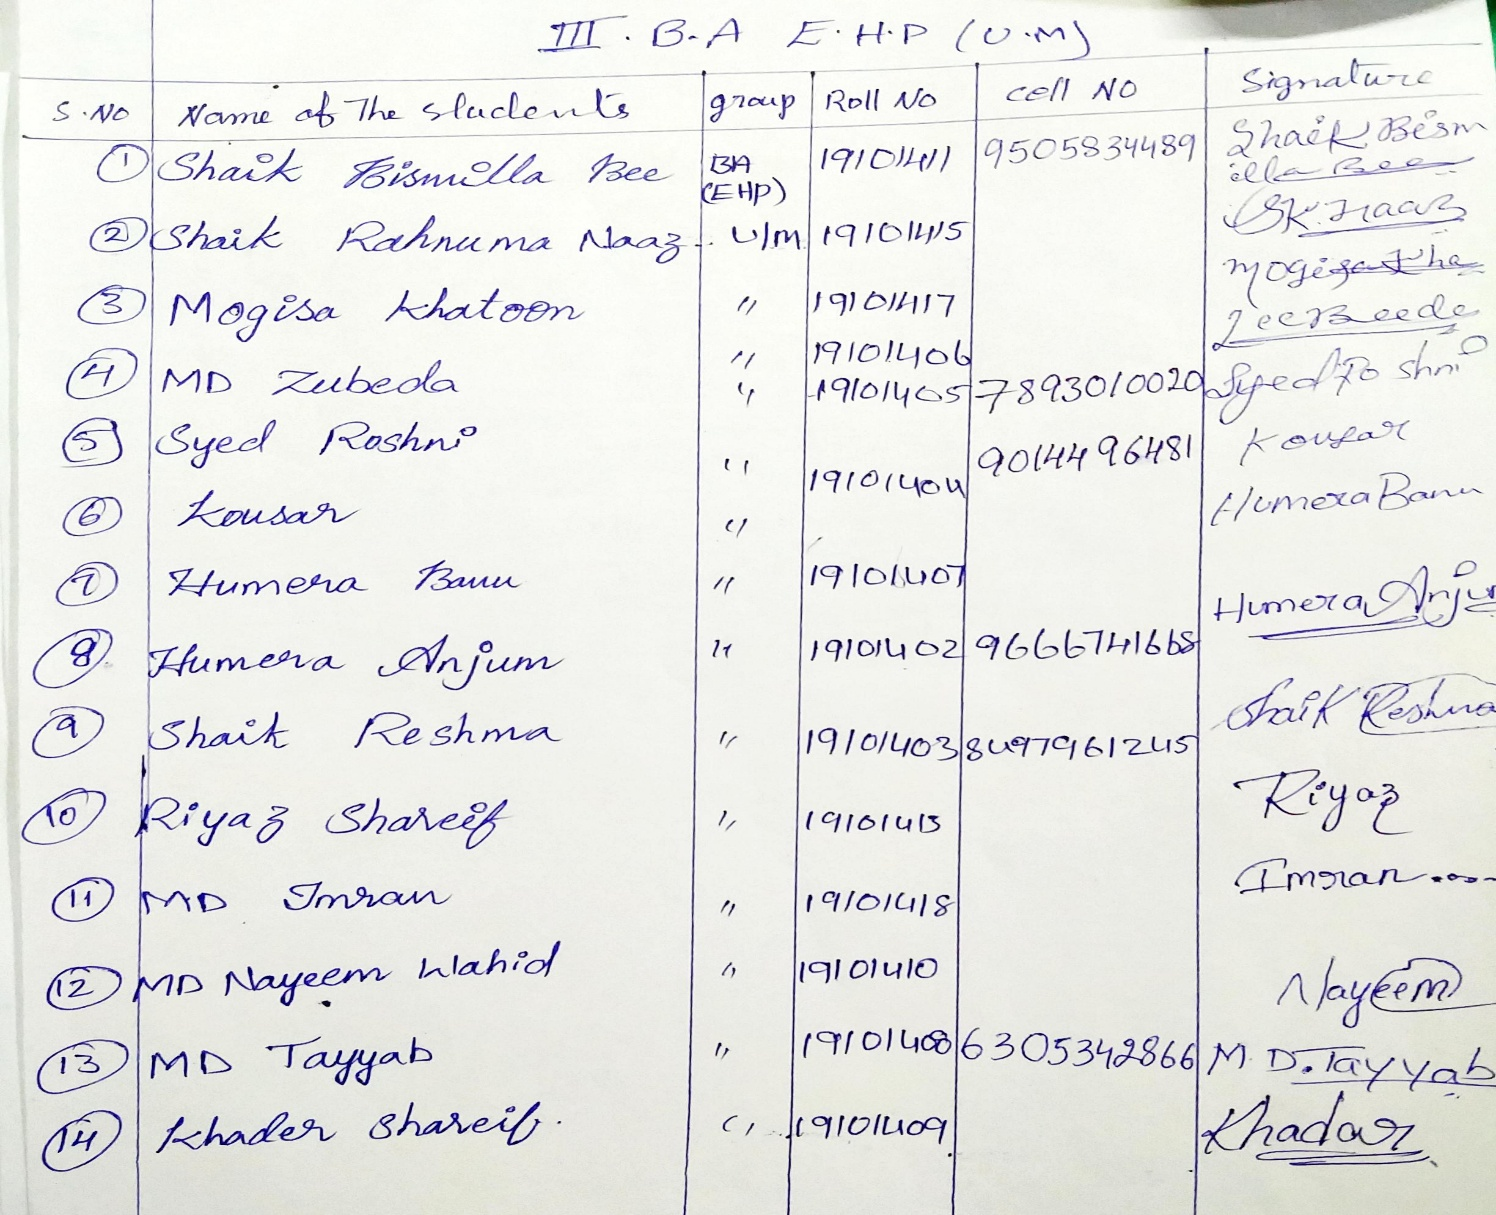 III . B.A E.H.P (U.M)
S.NO Name of The students group Roll No cell NO Signature
1 Shaik Bismilla Bee BA (EHP) 19101411 9505834489 Shaik Bismilla Bee
2 Shaik Rahnuma Naaz U/m 19101415 SK. Naaz
3 Mogisa Khatoon " 19101417 Mogisa Kha
4 MD Zubeda " 19101406
5 Syed Roshni " 19101405 7893010020 Syed Roshni
6 Kousar " 19101404 9014496481 Kousar
7 Humera Banu " 19101407 Humera Banu
8 Humera Anjum " 19101402 9666741668 Humera Anjum
9 Shaik Reshma " 19101403 8497961245 Shaik Reshma
10 Riyaz Shareif " 19101413 Riyaz
11 MD Imran " 19101418 Imran
12 MD Nayeem Wahid " 19101410 Nayeem
13 MD Tayyab " 19101408 6305342866 M.D.Tayyab
14 Khader Shareif. " 19101409 Khadar